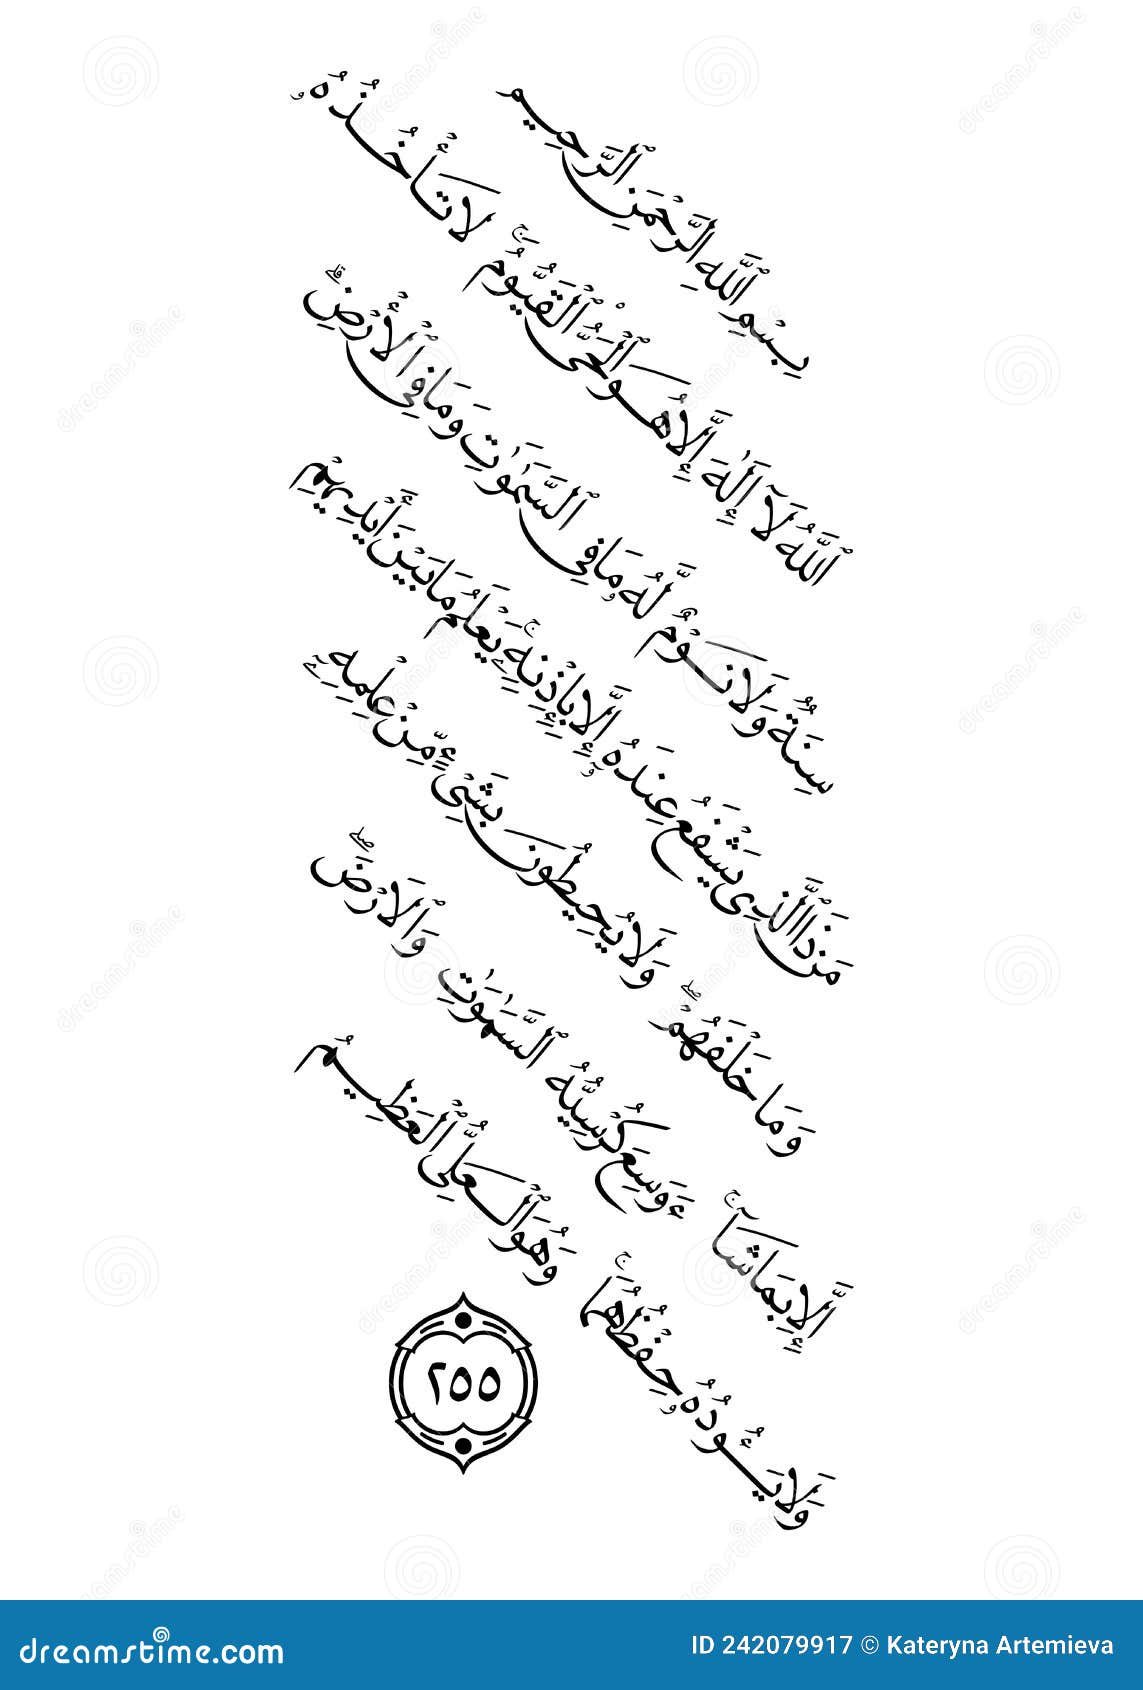 بِسْمِ ٱللَّهِ ٱلرَّحْمَٰنِ ٱلرَّحِيمِ
ٱللَّهُ لَآ إِلَٰهَ إِلَّا هُوَ ٱلْحَىُّ ٱلْقَيُّومُ ۚ لَا تَأْخُذُهُۥ
سِنَةٌ وَلَا نَوْمٌ ۚ لَّهُۥ مَا فِى ٱلسَّمَٰوَٰتِ وَمَا فِى ٱلْأَرْضِ ۗ
مَن ذَا ٱلَّذِى يَشْفَعُ عِندَهُۥٓ إِلَّا بِإِذْنِهِۦ ۚ يَعْلَمُ مَا بَيْنَ أَيْدِيهِمْ
وَمَا خَلْفَهُمْ ۖ وَلَا يُحِيطُونَ بِشَىْءٍ مِّنْ عِلْمِهِۦٓ
إِلَّا بِمَا شَآءَ ۚ وَسِعَ كُرْسِيُّهُ ٱلسَّمَٰوَٰتِ وَٱلْأَرْضَ ۖ
وَلَا يَـُٔودُهُۥ حِفْظُهُمَا ۚ وَهُوَ ٱلْعَلِىُّ ٱلْعَظِيمُ
٢٥٥
dreamstime.com
ID 242079917 © Kateryna Artemieva